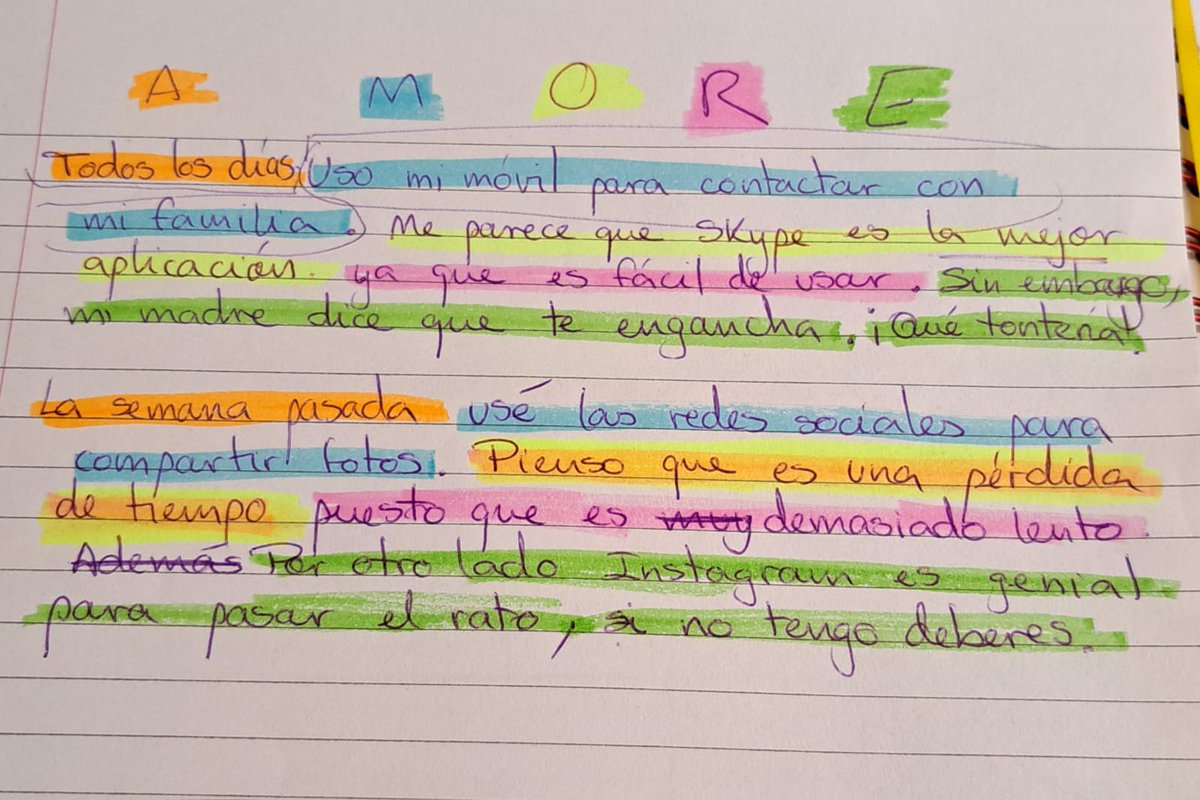 A M O R E
Todos los días, Uso mi móvil para contactar con
mi familia. Me parece que Skype es la mejor
aplicación. ya que es fácil de usar. Sin embargo,
mi madre dice que te engancha. ¡Qué tontería!
La semana pasada usé las redes sociales para
compartir fotos. Pienso que es una pérdida
de tiempo puesto que es muy demasiado lento.
Además Por otro lado Instagram es genial
para pasar el rato, si no tengo deberes.